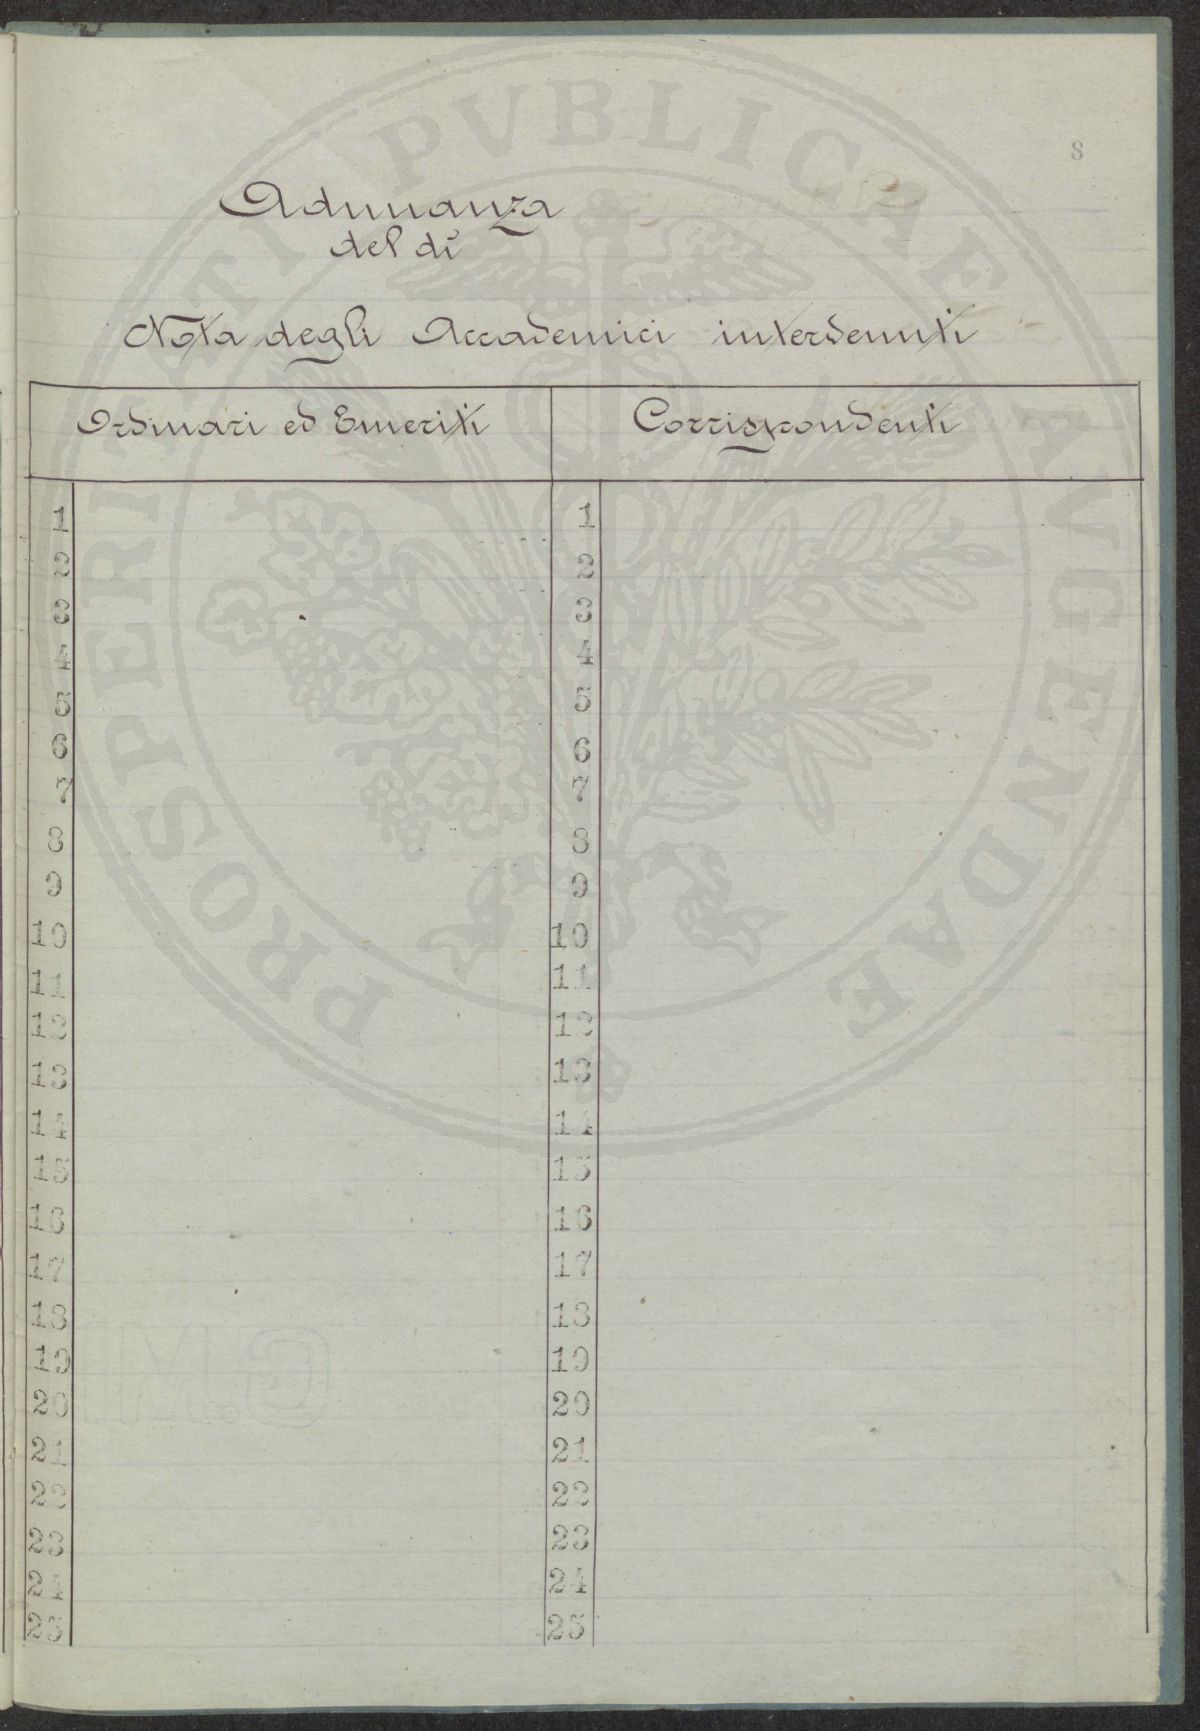 8
Adunanza
del dì
Nota degli Accademici intervenuti
Ordinari ed Emeriti
Corrispondenti
1 1
2 2
3 3
4 4
5 5
6 6
7 7
8 8
9 9
10 10
11 11
12 12
13 13
14 14
15 15
16 16
17 17
18 18
19 19
20 20
21 21
22 22
23 23
24 24
25 25
PROSPERITATI PVBLICAE AVGENDAE